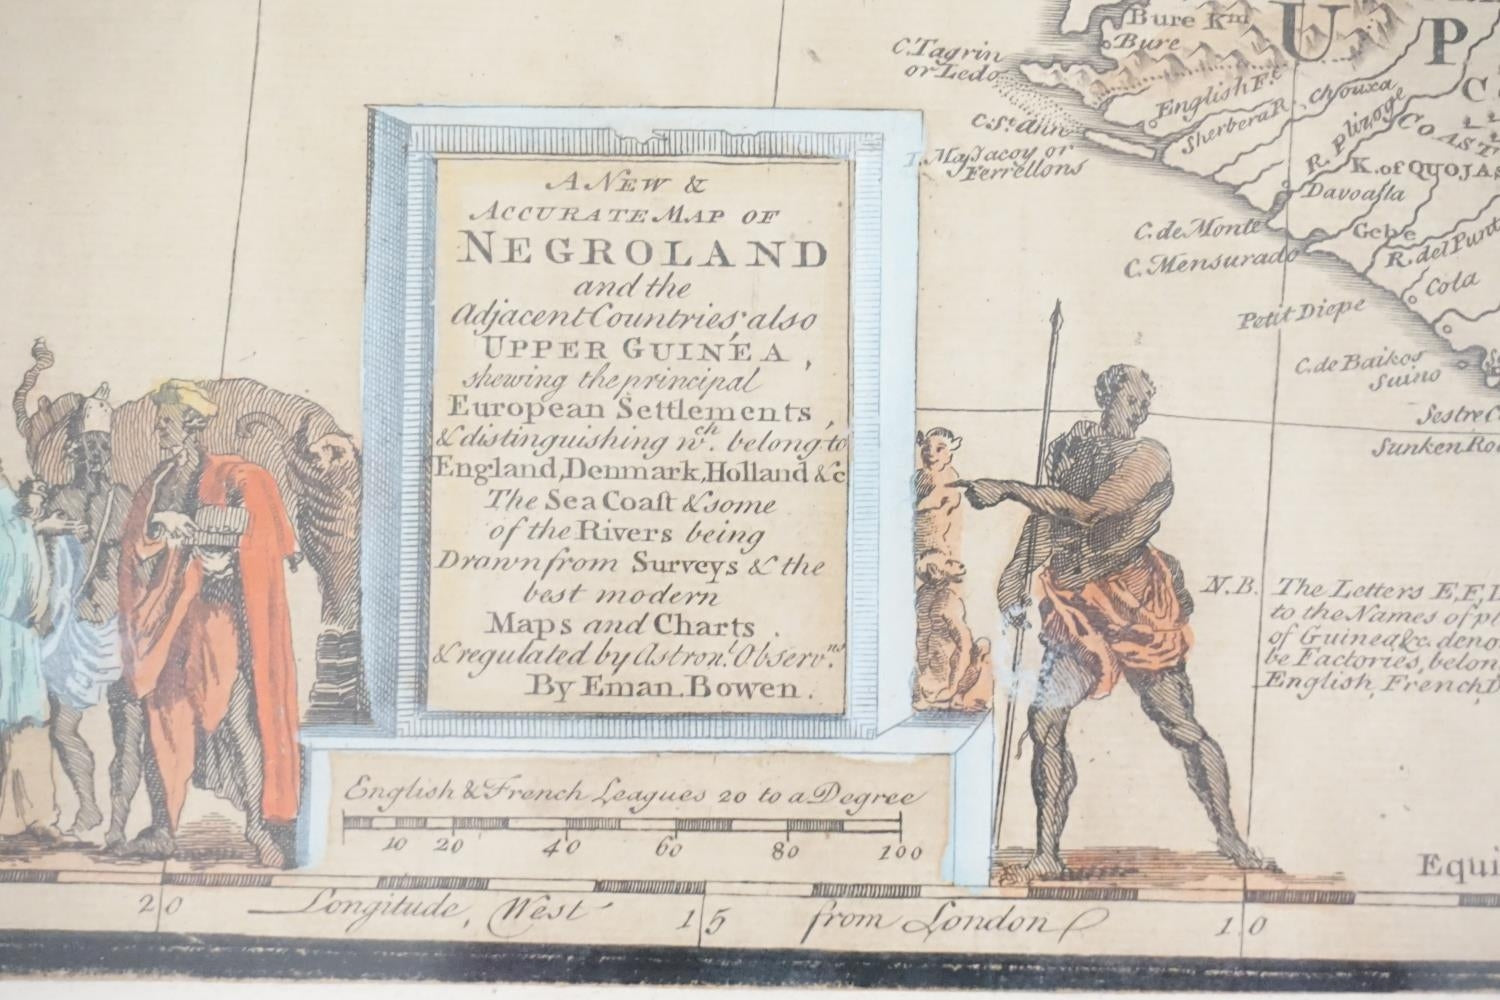 A NEW &
ACCURATE MAP OF
NEGROLAND
and the
Adjacent Countries; also
UPPER GUINÉA,
shewing the principal
European Settlements,
& distinguishing wch. belong to
England, Denmark, Holland &c
The Sea Coast & some
of the Rivers being
Drawn from Surveys & the
best modern
Maps and Charts.
& regulated by Astronl. Observns.
By Eman. Bowen.
English & French Leagues 20 to a Degree
10 20 40 60 80 100
20 Longitude, West 15 from London 10
Bure Km
Bure
C. Tagrin
or Ledo
English Ft.
Sherbera R.
Chouxa
C. St. Ann
I. Massacoy or
Ferrellons
R. Plizoge
COAST
K. of QUOJAS
Davoasla
C. de Monte
C. Mensurado
Gebe
R. del Punt
Cola
Petit Diepe
C. de Baikos
Suino
Sestre C
Sunken Roc
U P
N.B. The Letters E, F, D
to the Names of pl
of Guinea, &c. deno
be Factories, belon
English, French, D
Equi